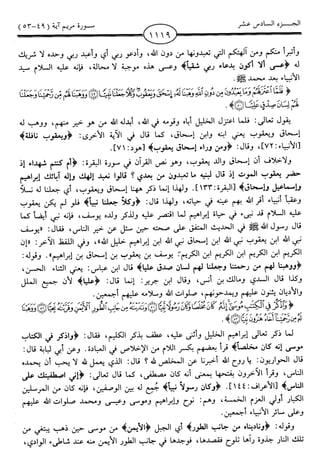 الجزء السادس عشر
سورة مريم آية (٤٩-٥٣)
١١١٩
وأتبرأ منكم ومن آلهتكم التي تعبدونها من دون الله، وأدعو ربي أي وأعبد ربي وحده لا شريك
له ﴿عسى ألا أكون بدعاء ربي شقياً﴾ وعسى هذه موجبة لا محالة، فإنه عليه السلام سيد
الأنبياء بعد محمد ﷺ.
يقول تعالى: فلما اعتزل الخليل أباه وقومه في الله، أبدله الله من هو خير منهم، ووهب له
إسحاق ويعقوب يعني ابنه وابن إسحاق، كما قال في الآية الأخرى: ﴿ويعقوب نافلة﴾
[الأنبياء: ٧٢]، وقال: ﴿ومن وراء إسحاق يعقوب﴾ [هود: ٧١].
ولا خلاف أن إسحاق والد يعقوب، وهو نص القرآن في سورة البقرة: ﴿أم كنتم شهداء إذ
حضر يعقوب الموت إذ قال لبنيه ما تعبدون من بعدي ؟ قالوا نعبد إلهك وإله آبائك إبراهيم
وإسماعيل وإسحاق﴾ [البقرة: ١٣٣]. ولهذا إنما ذكر ههنا إسحاق ويعقوب، أي جعلنا له نسلاً
وعقباً أنبياء أقر الله بهم عينه في حياته، ولهذا قال: ﴿وكلاً جعلنا نبياً﴾ فلو لم يكن يعقوب
عليه السلام قد نبىء في حياة إبراهيم لما اقتصر عليه ولذكر ولده يوسف، فإنه نبي أيضاً كما
قال رسول الله ﷺ في الحديث المتفق على صحته حين سئل عن خير الناس، فقال: «يوسف
نبي الله ابن يعقوب نبي الله ابن إسحاق نبي الله ابن إبراهيم خليل الله»، وفي اللفظ الآخر: «إن
الكريم ابن الكريم ابن الكريم ابن الكريم: يوسف بن يعقوب بن إسحاق بن إبراهيم». وقوله:
﴿ووهبنا لهم من رحمتنا وجعلنا لهم لسان صدق علياً﴾ قال ابن عباس: يعني الثناء الحسن،
وكذا قال السدي ومالك بن أنس، وقال ابن جرير: إنما قال: ﴿علياً﴾ لأن جميع الملل
والأديان يثنون عليهم ويمدحونهم، صلوات الله وسلامه عليهم أجمعين.
لما ذكر تعالى إبراهيم الخليل وأثنى عليه، عطف بذكر الكليم، فقال: ﴿واذكر في الكتاب
موسى إنه كان مخلصاً﴾ قرأ بعضهم بكسر اللام من الإخلاص في العبادة. وعن أبي لبابة قال:
قال الحواريون: يا روح الله أخبرنا عن المخلص لله ؟ قال: الذي يعمل لله لا يحب أن يحمده
الناس، وقرأ الآخرون بفتحها بمعنى أنه كان مصطفى، كما قال تعالى: ﴿إني اصطفيتك على
الناس﴾ [الأعراف: ١٤٤]. ﴿وكان رسولاً نبياً﴾ جمع له بين الوصفين، فإنه كان من المرسلين
الكبار أولي العزم الخمسة، وهم: نوح وإبراهيم وموسى وعيسى ومحمد صلوات الله عليهم
وعلى سائر الأنبياء أجمعين.
وقوله: ﴿وناديناه من جانب الطور﴾ أي الجبل ﴿الأيمن﴾ من موسى حين ذهب يبتغي من
تلك النار جذوة رآها تلوح فقصدها، فوجدها في جانب الطور الأيمن منه عند شاطىء الوادي،